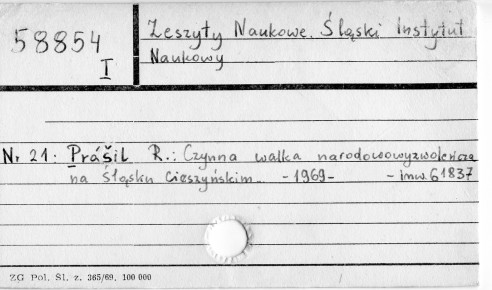 58854
I
Zeszyty Naukowe. Śląski Instytut
Naukowy
Nr 21: Prášil R.: Czynna walka narodowowyzwoleńcza
na Śląsku Cieszyńskim. - 1969 - - inw. 61837
ZG Pol. Śl. z. 365/69, 100 000